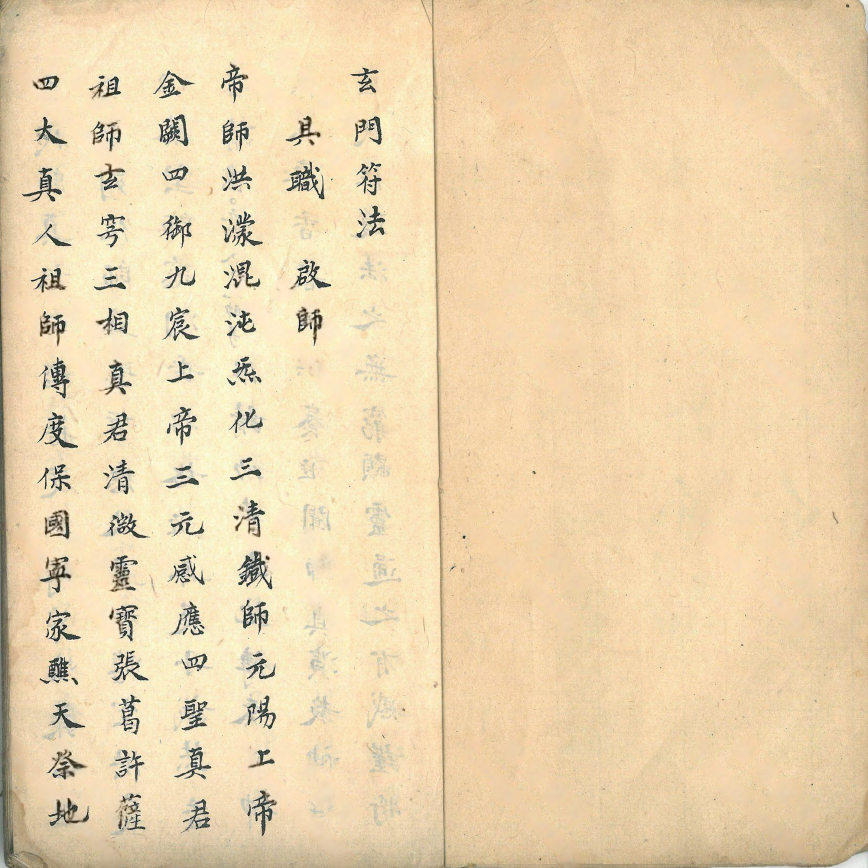 玄門符法
具職 啟師
帝師洪濛混沌炁化三清鍼師元陽上帝
金闕四御九宸上帝三元感應四聖真君
祖師玄穹三相真君清微靈寶張葛許薩
四大真人祖師傳度保國寧家醮天祭地